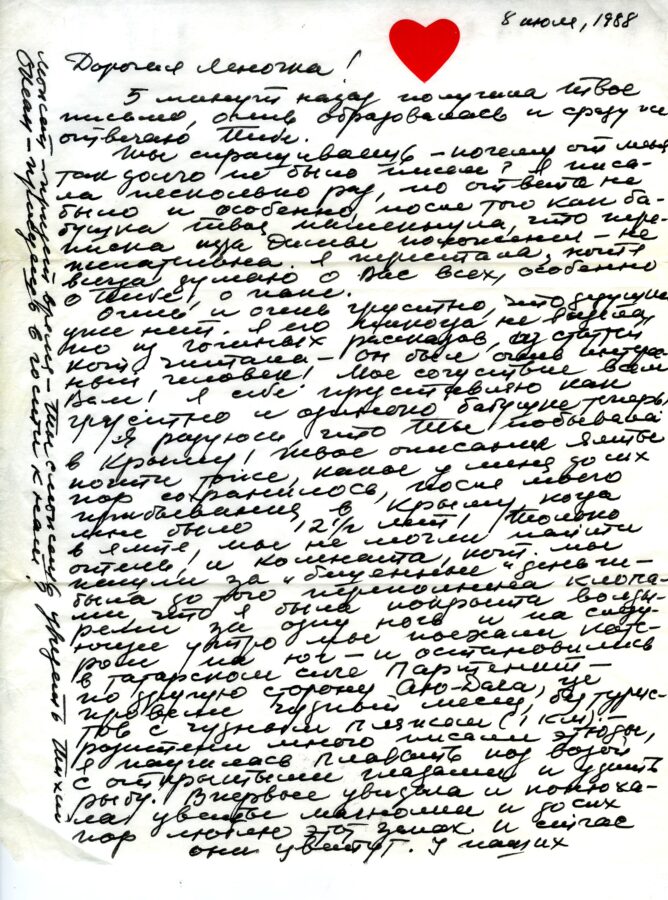 8 июля, 1988
Дорогая Леночка!
5 минут назад получила твое
письмо, очень обрадовалась и сразу же
отвечаю Тебе.
Ты спрашиваешь – почему от меня
так долго не было писем? Я писа-
ла несколько раз, но ответа не
было и особенно, после того как ба-
бушка твоя намекнула, что пере-
писка из
желательна. Я перестала, хотя
всегда думаю о Вас всех, особенно
о Тебе, о папе.
Очень и очень грустно, что дедушки
уже нет. Я его никогда не видела,
но из рассказов, из статей
кот. читала – он был очень интерес-
ный человек! Мое сочувствие всем
Вам! Я себе представляю как
грустно и одиноко бабушке теперь.
Я радуюсь, что Ты побывала
в Крыму! Твое описание Ялты
почти тоже, какое у меня до сих
пор сохранилось, после моего
пребывания в Крыму, когда
мне было 12½ лет! Только
в Ялте, мы не могли найти
отель, и комната, кот. мы
за "бешенные" деньги
была до того переполнена клопа-
ми что я была покрыта волды-
рями за одну ночь и на следу-
ющее утро мы поехали кате-
ром на юг – и остановились
в татарском селе Партенит –
по другую сторону Аю-Дага, где
провели чудный месяц, без турис-
тов с чудным пляжем (1 км). –
родители много писали этюды,
я научилась плавать под водой
с открытыми глазами и удить
рыбу. Впервые увидала и понюха-
ла цветы магнолии и до сих
пор люблю этот запах и сейчас
они цветут. У наших
Может придет время – Ты сможешь увидеть Тихий
Океан – приедешь в гости к нам!